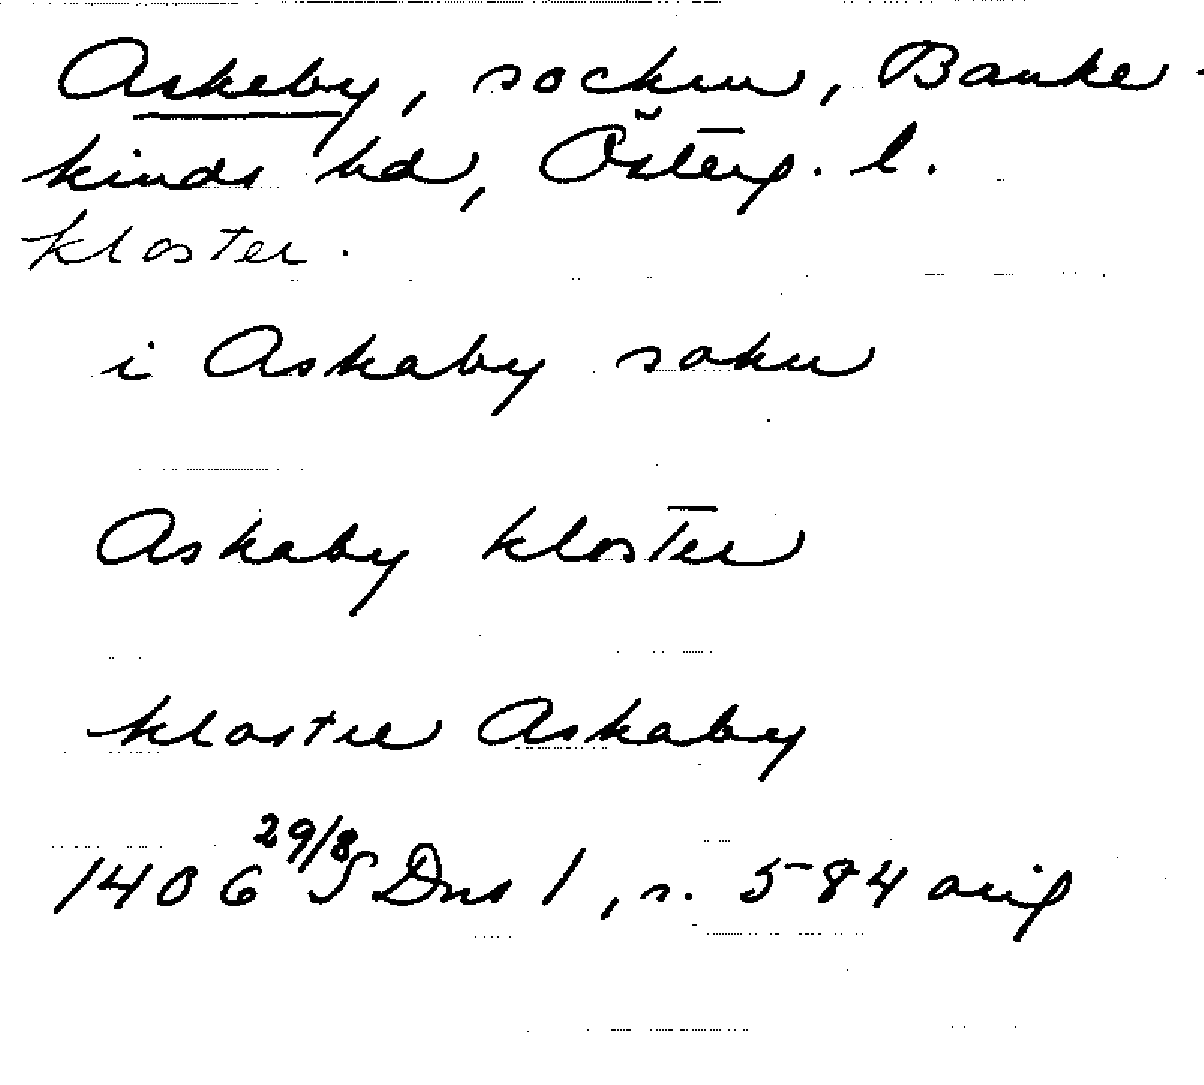 Askeby, socken, Banke-
kinds hd, Österg. l.
kloster.
i Askaby sokn
Askaby kloster
kloster Askaby
1406 29/8 SDns 1, s. 584 orig